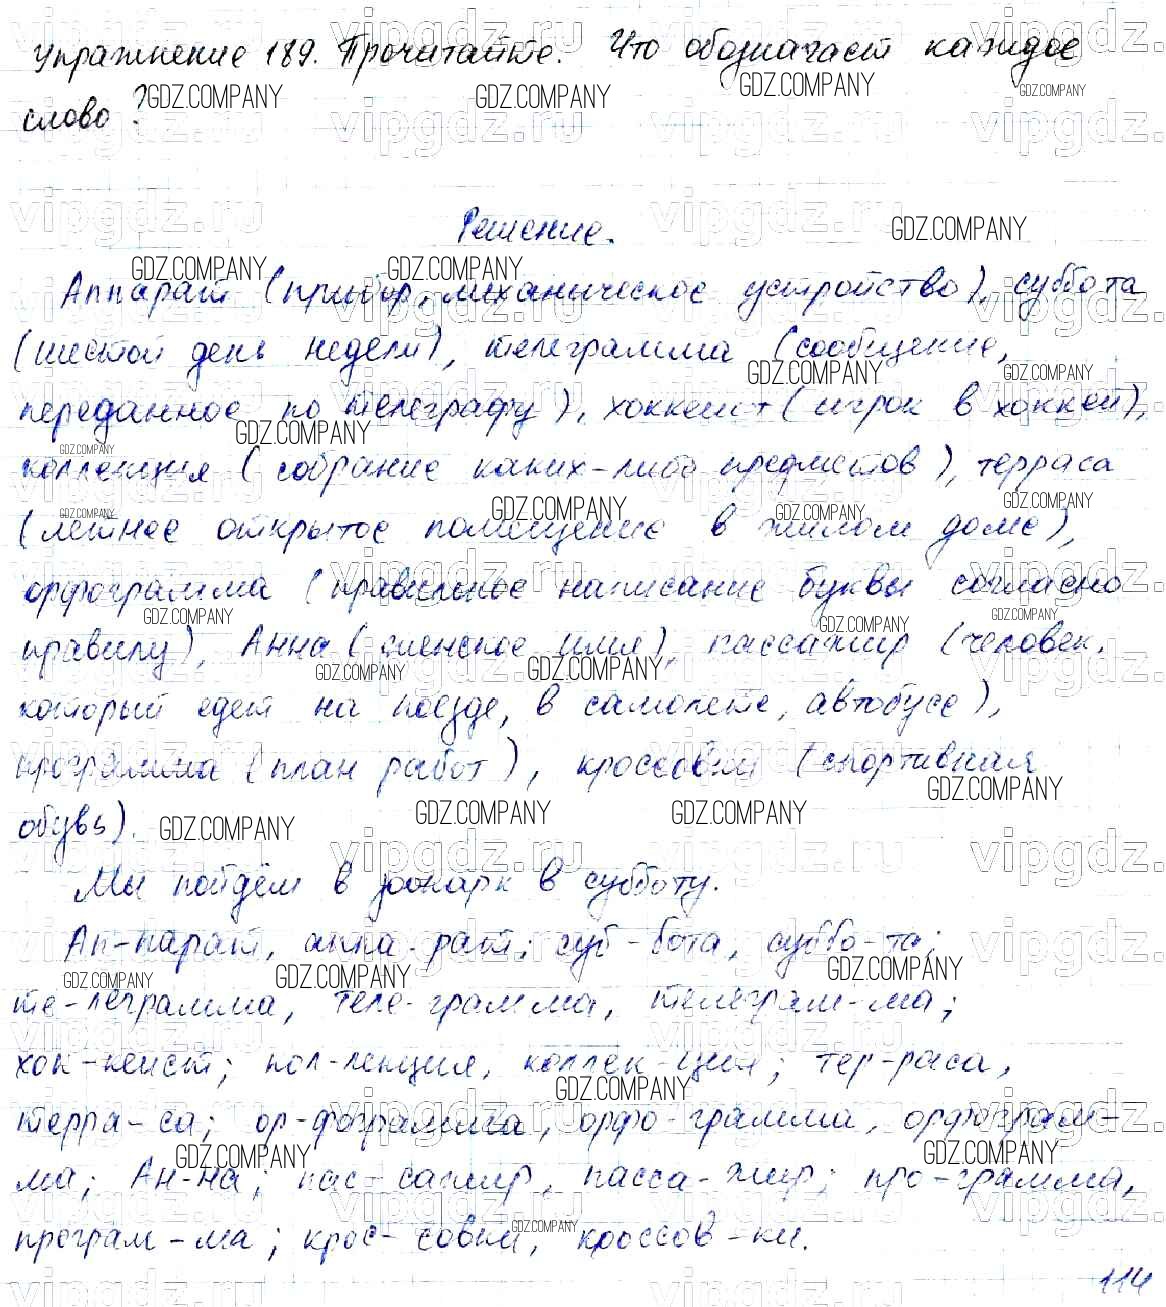 Упражнение 189. Прочитайте. Что обозначает каждое
слово?
Решение.
Аппарат (прибор, механическое устройство), суббота
(шестой день недели), телеграмма (сообщение,
переданное по телеграфу), хоккеист (игрок в хоккей),
коллекция (собрание каких-либо предметов), терраса
(летнее открытое помещение в жилом доме),
орфограмма (правильное написание буквы согласно
правилу), Анна (женское имя), пассажир (человек,
который едет на поезде, в самолете, автобусе),
программа (план работ), кроссовки (спортивная
обувь).
Мы пойдём в зоопарк в субботу.
Ап-парат, аппа-рат; суб-бота, суббо-та;
те-леграмма, теле-грамма, телеграм-ма;
хок-кеист; кол-лекция, коллек-ция; тер-раса,
терра-са; ор-фограмма, орфо-грамма, орфограм-
ма; Ан-на; пас-сажир, пасса-жир; про-грамма,
програм-ма; крос-совки, кроссов-ки.
114